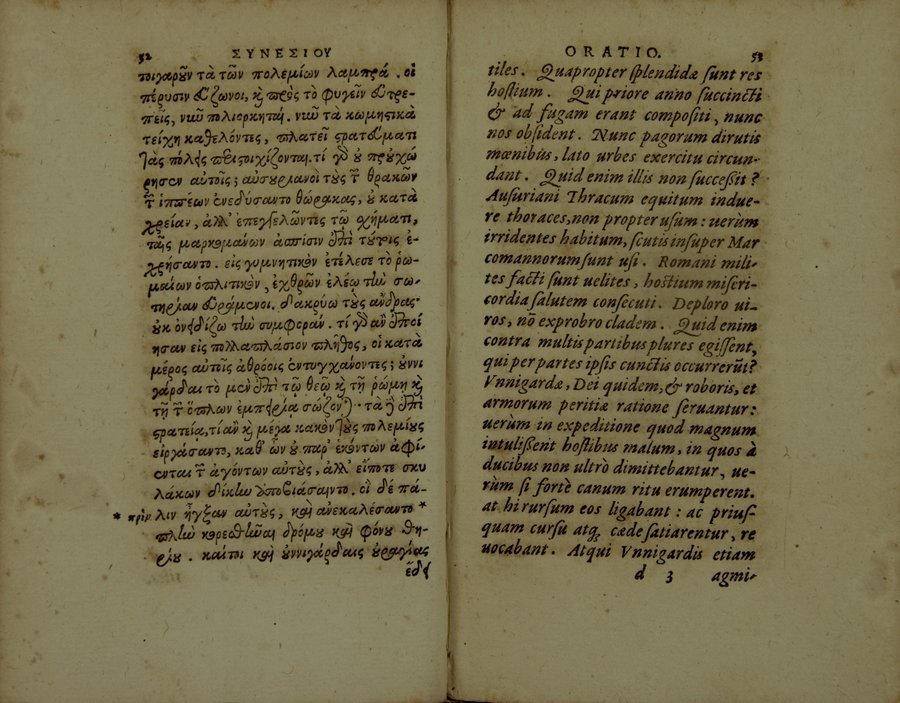 52 ΣΥΝΕΣΙΟΥ
τοιγαροῦν τὰ τῶν πολεμίων λαμπρά. οἱ
πέρυσιν εὔζωνοι, καὶ πρὸς τὸ φυγεῖν εὐτρε-
πεῖς, νυῶ πολιορκηταί. νυῶ τὰ κωμητικὰ
τείχη καθελόντες, πλατεῖ στρατεύματι
τὰς πόλεις περιστοιχίζονται. τί γὸ οὐ προὐχώ
ρησεν αὐτοῖς; αὐσουριανοὶ τοὺς τῶν θρακῶν
τῶν ἱππέων ἐνεδύσαντο θώρακας, οὐ κατὰ
χρείαν, ἀλλ' ἐπεγγελῶντες τῷ σχήματι,
ταῖς μαρκομάνων ἀσπίσιν ἐπὶ τούτοις ἐ-
χρήσαντο. εἰς γυμνητικὸν ἐτέλεσε τὸ ῥω-
μαίων ὁπλιτικὸν, ἐχθρῶν ἐλέῳ τὴν σω-
τηρίαν εὑράμενοι. δακρύω τοὺς ἄνδρας·
οὐκ ὀνειδίζω τὴν συμφοράν. τί γὸ ἂν ἐποί
ησαν εἰς πολλαπλάσιον πλῆθος, οἱ κατὰ
μέρος αὐτοῖς ἀθρόοις ἐντυγχάνοντες; οὐννι
γάρδαι τὸ μὲν ἐπὶ τῷ θεῷ καὶ τῇ ῥώμῃ καὶ
τῇ τῶν ὅπλων ἐμπειρίᾳ σώζονται· τὰ δὲ ἐπὶ
στρατείᾳ, τί ἂν καὶ μέγα κακὸν τοὺς πολεμίους
εἰργάσαντο, καθ' ὧν οὐ παρ' ἑκόντων ἀφί-
ενται τῶν ἀγόντων αὐτοὺς, ἀλλ' εἴποτε σκυ
λάκων δίκην ὑποβιάσαιντο. οἱ δὲ πά-
* πρὶν λιν ἦγξαν αὐτοὺς, καὶ ἀνεκαλέσαντο *
πλὴν κορεσθῆναι δρόμου καὶ φόνου θη-
ρίου. καίτοι καὶ οὐννιγάρδαις οὐραγίας
ἔδει
ORATIO. 53
tiles. Quapropter splendidæ sunt res
hostium. Qui priore anno succincti
& ad fugam erant compositi, nunc
nos obsident. Nunc pagorum dirutis
mœnibus, lato urbes exercitu circun-
dant. Quid enim illis non successit?
Ausuriani Thracum equitum indue-
re thoraces, non propter usum: uerùm
irridentes habitum, scutis insuper Mar
comannorum sunt usi. Romani mili-
tes facti sunt uelites, hostium miseri-
cordia salutem consecuti. Deploro ui-
ros, nō exprobro cladem. Quid enim
contra multis partibus plures egissent,
qui per partes ipsis cunctis occurrerūt?
Vnnigardæ, Dei quidem, & roboris, et
armorum peritiæ ratione seruantur:
uerùm in expeditione quod magnum
intulissent hostibus malum, in quos à
ducibus non ultrò dimittebantur, ue-
rùm si fortè canum ritu erumperent.
at hi rursum eos ligabant: ac prius-
quam cursu atq; cæde satiarentur, re
uocabant. Atqui Vnnigardis etiam
d 3 agmi-